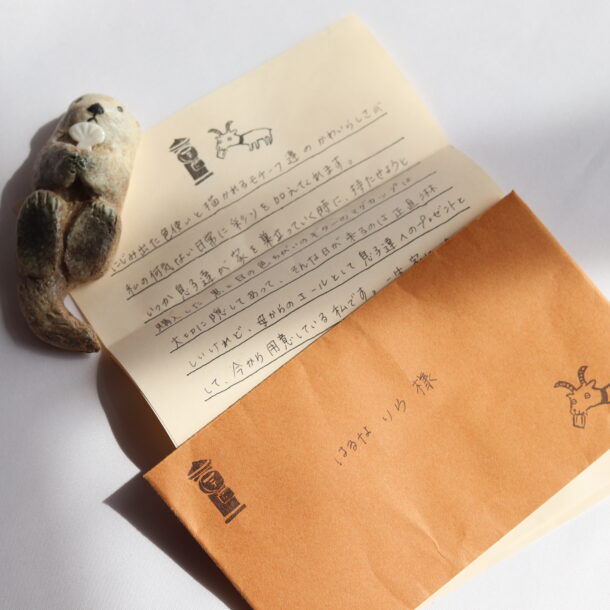 にじみ出た色使いと描かれるモチーフ達のかわいらしさが
私の何気ない日常に彩りを加えてくれます。
いつか息子達が家を巣立っていく時に、持たせようと
購入した黒と白の色ちがいのギターのマグカップは
大切に隠してあって、そんな日が来るのは正直淋
しいけれど、母からのエールとして息子達へのプレゼントと
して、今から用意している私です。
はるな りら 様